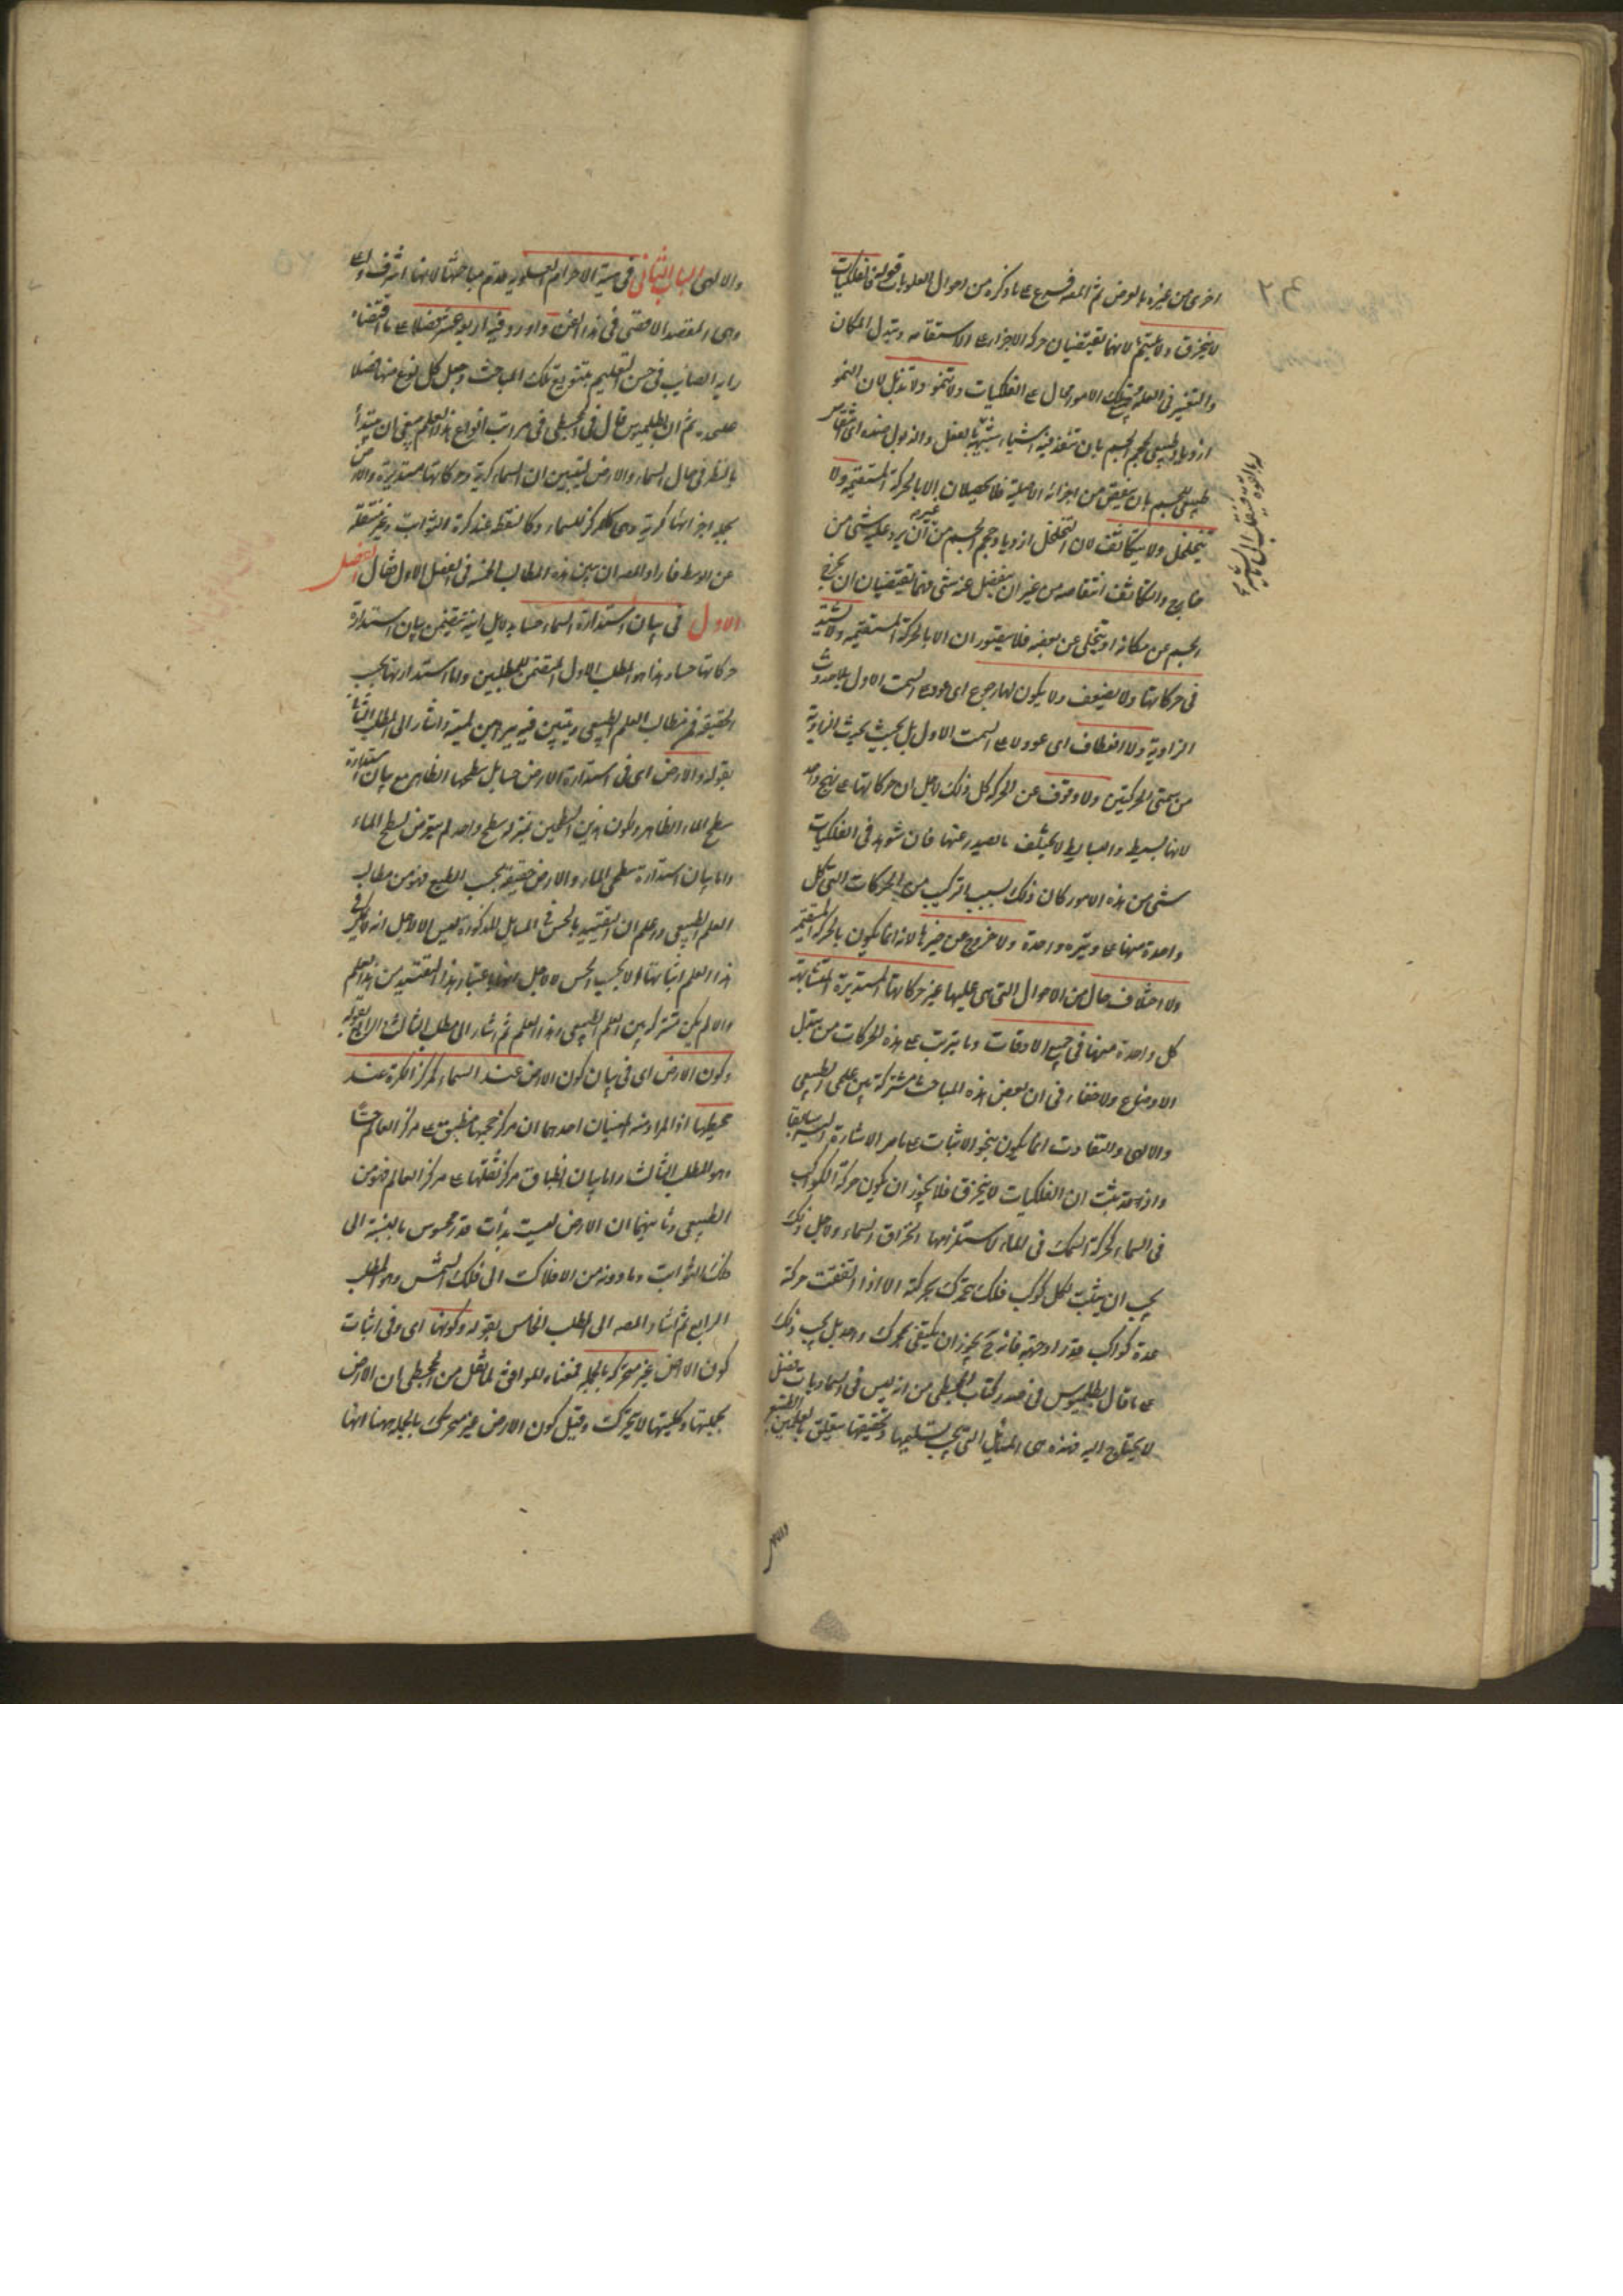 اخرى من غيره بالعرض ثم المص فرع على ما ذكره من احوال العلويات قوله فالفلكيات
لا ينخرق ولا يلتئم لانهما يقتضيان حركة الاجزاء على الاستقامة وتبدل المكان
والتغير في العلم تلك الامور محال على الفلكيات ولا تنمو ولا تذبل لان النمو
ازدياد طبيعي لحجم الجسم بان تنفذ فيه اشياء شبيهة بالفعل والذبول ضده اى انتقاص
طبيعي للجسم بان ينقص من اجزائه الاصلية فلا يحصلان الا بالحركة المستقيمة ولا
يتخلخل ولا يتكاثف لان التخلخل ازدياد حجم الجسم من غير ان يرد عليه شئ من
خارج والتكاثف انتقاصه من غير ان ينفصل عنه شئ فهما يقتضيان ان يخرج
الجسم عن مكانه او يتخلى عن بعضه فلا يتصور ان الا بالحركة المستقيمة ولا تشتد
في حركاتها ولا يضعف ولا يكون لها رجوع اى عود على السمت الاول بلا حدوث
الزاوية ولا انعطاف اى عود لا على السمت الاول بل بحيث يحدث الزاوية
من سمتى الحركتين ولا وقوف عن الحركة كل ذلك لاجل ان حركاتها على نهج واحد
لانها بسيط والبسايط لا يختلف ما يصدر عنها فان شوهد في الفلكيات
شئ من هذه الامور كان ذلك بسبب التركيب من الحركات التي كل
واحدة منها على وتيرة واحدة ولا خروج عن حيزها لانه انما يكون بالحركة المستقيمة
ولا اختلاف حال من الاحوال التي هي عليها غير حركاتها المستديرة المتشابهة
كل واحدة منها في جميع الاوقات وما يترتب على هذه الحركات من تبدل
الاوضاع ولا خفاء في ان بعض هذه المباحث مشتركة بين علمى الطبيعى
والالهى والتفاوت انما يكون بنحو الاثبات على ما مر الاشارة اليه سابقا
واذا قد ثبت ان الفلكيات لا ينخرق فلا يجوز ان يكون حركة الكواكب
في السماء كحركة السمك في الماء لاستلزامها انخراق السماء ولاجل ذلك
يجب ان يثبت لكل كوكب فلك يتحرك بحركته الا اذا اتفقت حركة
عدة كواكب قدرا وجهة فانه ح يجوز ان يكتفى بمحرك واحد بل يجب ذلك
على ما قال بطلميوس في صدر كتاب المجسطى من انه ليس في السماويات فضل
لا يحتاج اليه فهذه هي المسائل التي يجب تسليمها وتحقيقها يتعلق بالعلمين الطبيعى
والالهى
والالهى الباب الثانى في هيئة الاجرام العلوية قدم مباحثها لانها اشرف ولانه
وهي المقصد الاقصى في هذا الفن واورد فيه اربعة عشر فصلا على ما اقتضاه
رايه الصايب في حسن التعليم بتنويع تلك المباحث وجعل كل نوع منها فصلا
على حدة ثم ان بطلميوس قال في المجسطى في مراتب انواع هذا العلم ينبغى ان يبتدأ
بالنظر في حال السماء والارض ليتبين ان السماء كرية وحركاتها مستديرة والارض
بجملة اجزائها كرية وهي كالمركز للسماء وكالنقطة عند كرة الثوابت وغير منتقلة
عن الوسط فاراد المص ان يبين هذه المطالب الخمسة في الفصل الاول فقال الفصل
الاول في بيان استدارة السماء حسا بدلايل انية يتضمن بيان استدارة
حركاتها حسا وهذا هو المطلب الاول المتضمن للمطلبين واما استدارتها بحسب
الحقيقة فمن مطالب العلم الطبيعى ويتبين فيه ببراهين لمية واشار الى المطلب الثانى
بقوله والارض اى في استدارة الارض حسا بل سطحها الظاهر مع بيان استدارة
سطح الماء الظاهر ولكون هذين السطحين بمنزلة سطح واحد لم يتعرض لسطح الماء
واما بيان استدارة سطحى الماء والارض حقيقة بحسب الطبع فهو من مطالب
العلم الطبيعى واعلم ان التقييد بالحس في المسائل المذكورة ليس الا لاجل انه لا يمكن في
هذا العلم اثباتها الا بحسب الحس لا لاجل انها باعتبار هذا التقييد من هذا العلم
والا لم يكن مشتركة بين العلم الطبيعى وهذا العلم ثم اشار الى المطلب الثالث والرابع بقوله
وكون الارض اى في بيان كون الارض عند السماء كمركز الكرة عند
محيطها اذ المراد منه المعنيان احدهما ان مركز حجمها منطبق على مركز العالم حسا
وهو المطلب الثالث واما بيان انطباق مركز ثقلها على مركز العالم فهو من
الطبيعى وثانيهما ان الارض ليست بذات قدر محسوس بالنسبة الى
فلك الثوابت وما دونه من الافلاك الى فلك الشمس وهو المطلب
الرابع ثم اشار المص الى المطلب الخامس بقوله وكونها اى وفى اثبات
كون الارض غير متحركة بالجملة فمعناه للموافق لما نقل من المجسطى ان الارض
بجملتها وكليتها لا يتحرك وقيل كون الارض غير متحرك بالجملة ههنا انها